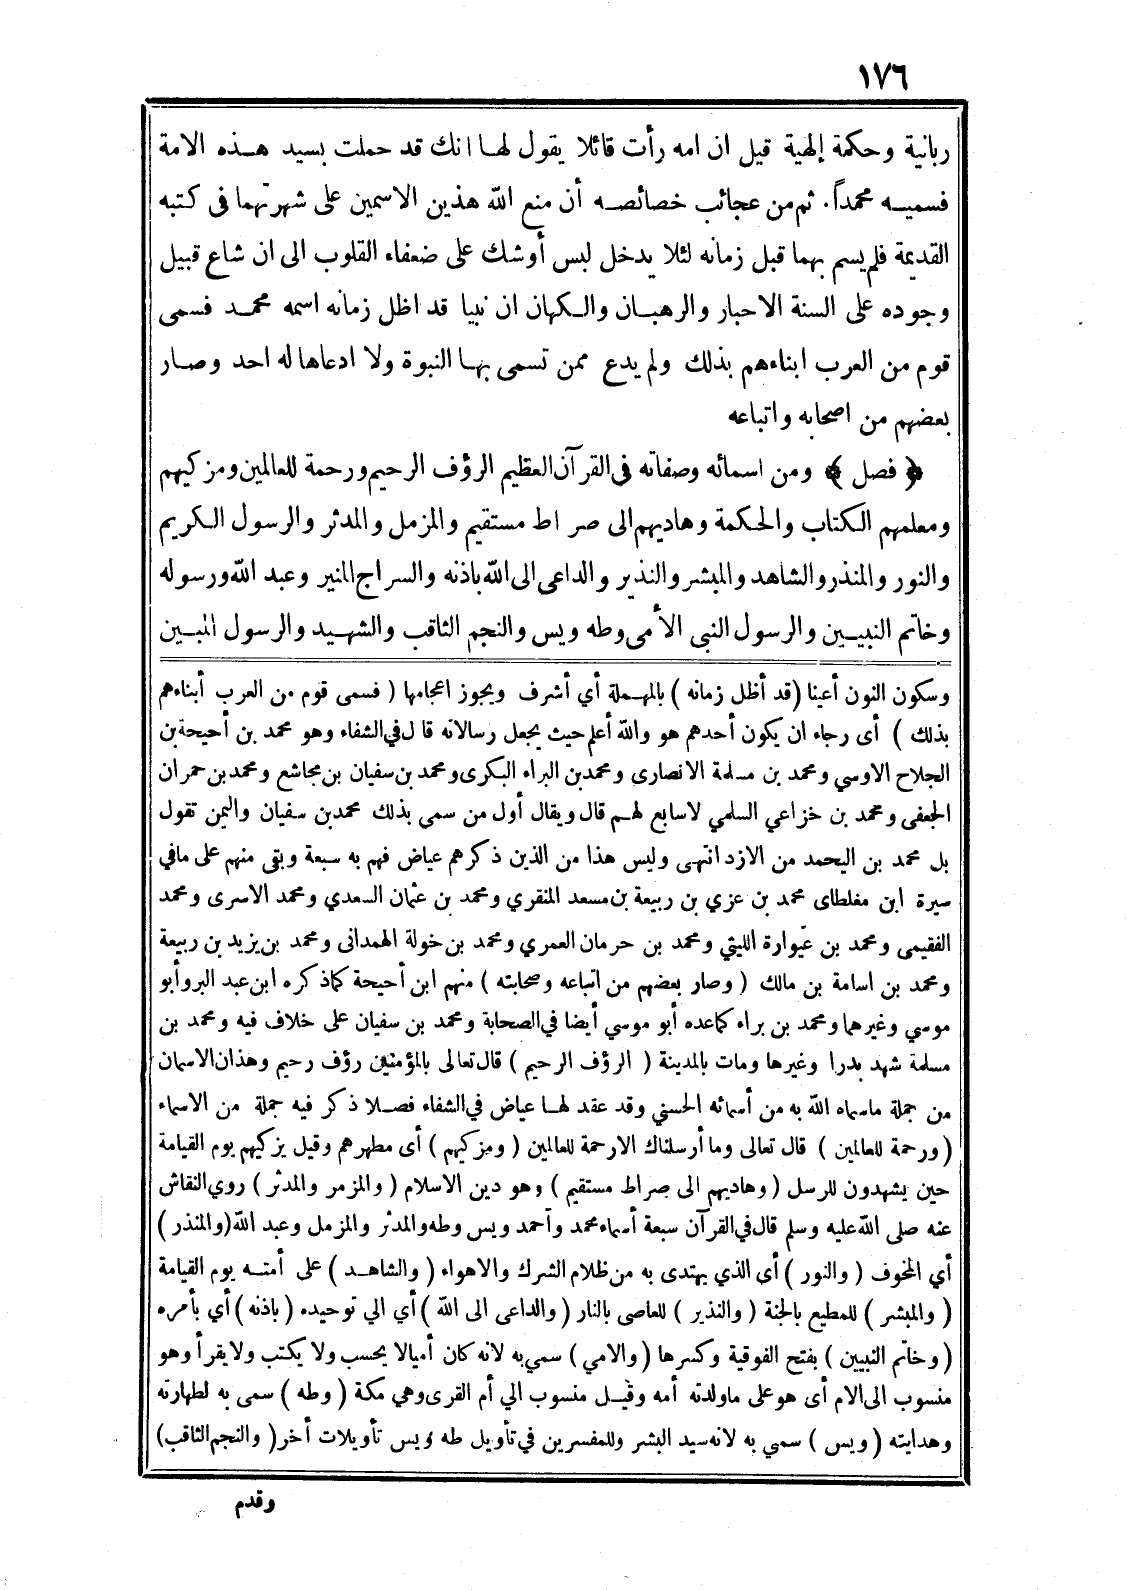 ١٧٦
ربانية وحكمة إلهية قيل ان امه رأت قائلا يقول لها انك قد حملت بسيد هذه الامة
فسميه محمداً. ثم من عجائب خصائصه أن منع الله هذين الاسمين على شهرتهما فى كتبه
القديمة فلم يسم بهما قبل زمانه لئلا يدخل لبس أوشك على ضعفاء القلوب الى ان شاع قبيل
وجوده على السنة الاحبار والرهبان والكهان ان نبيا قد اظل زمانه اسمه محمد فسمى
قوم من العرب ابناءهم بذلك ولم يدع ممن تسمى بها النبوة ولا ادعاها له احد وصار
بعضهم من اصحابه واتباعه
﴿ فصل ﴾ ومن اسمائه وصفاته فى القرآن العظيم الرؤف الرحيم ورحمة للعالمين ومزكيهم
ومعلمهم الكتاب والحكمة وهاديهم الى صراط مستقيم والمزمل والمدثر والرسول الكريم
والنور والمنذر والشاهد والمبشر والنذير والداعى الى الله باذنه والسراج المنير وعبد الله ورسوله
وخاتم النبيين والرسول النبى الأمى وطه ويس والنجم الثاقب والشهيد والرسول المبين
وسكون النون أعينا (قد أظل زمانه) بالمهملة أي أشرف ويجوز اعجامها (فسمى قوم من العرب أبناءهم
بذلك) أى رجاء ان يكون أحدهم هو والله أعلم حيث يجعل رسالاته قال في الشفاء وهو محمد بن أحيحة بن
الجلاح الاوسي ومحمد بن مسلمة الانصارى ومحمد بن البراء البكرى ومحمد بن سفيان بن مجاشع ومحمد بن حمران
الجعفى ومحمد بن خزاعي السلمي لا سابع لهم قال ويقال أول من سمى بذلك محمد بن سفيان واليمن تقول
بل محمد بن اليحمد من الازد انتهى وليس هذا من الذين ذكرهم عياض فهم به سبعة وبقى منهم على مافي
سيرة ابن مغلطاى محمد بن عزي بن ربيعة بن مسعد المنقري ومحمد بن عثمان السعدي ومحمد الاسرى ومحمد
الفقيمى ومحمد بن عيوارة الليثي ومحمد بن حرمان العمري ومحمد بن خولة الهمدانى ومحمد بن يزيد بن ربيعة
ومحمد بن اسامة بن مالك (وصار بعضهم من اتباعه وصحابته) منهم ابن أحيحة كما ذكره ابن عبد البر وأبو
موسي وغيرهما ومحمد بن براء كما عده أبو موسي أيضا في الصحابة ومحمد بن سفيان على خلاف فيه ومحمد بن
مسلمة شهد بدرا وغيرها ومات بالمدينة (الرؤف الرحيم) قال تعالى بالمؤمنين رؤف رحيم وهذان الاسمان
من جملة ماسماه الله به من أسمائه الحسني وقد عقد لها عياض في الشفاء فصلا ذكر فيه جملة من الاسماء
(ورحمة للعالمين) قال تعالى وما أرسلناك الا رحمة للعالمين (ومزكيهم) أى مطهرهم وقيل يزكيهم يوم القيامة
حين يشهدون للرسل (وهاديهم الى صراط مستقيم) وهو دين الاسلام (والمزمر والمدثر) روي النقاش
عنه صلى الله عليه وسلم قال في القرآن سبعة أسماء محمد وأحمد ويس وطه والمدثر والمزمل وعبد الله (والمنذر)
أي المخوف (والنور) أى الذي يهتدى به من ظلام الشرك والاهواء (والشاهد) على أمته يوم القيامة
(والمبشر) للمطيع بالجنة (والنذير) للعاصى بالنار (والداعى الى الله) أي الي توحيده (باذنه) أي بأمره
(وخاتم النبيين) بفتح الفوقية وكسرها (والامي) سمي به لانه كان أميا لا يحسب ولا يكتب ولا يقرأ وهو
منسوب الى الام أى هو على ما ولدته أمه وقيل منسوب الي أم القرى وهي مكة (وطه) سمى به لطهارته
وهدايته (ويس) سمي به لانه سيد البشر وللمفسرين في تأويل طه ويس تأويلات أخر (والنجم الثاقب)
وقدم